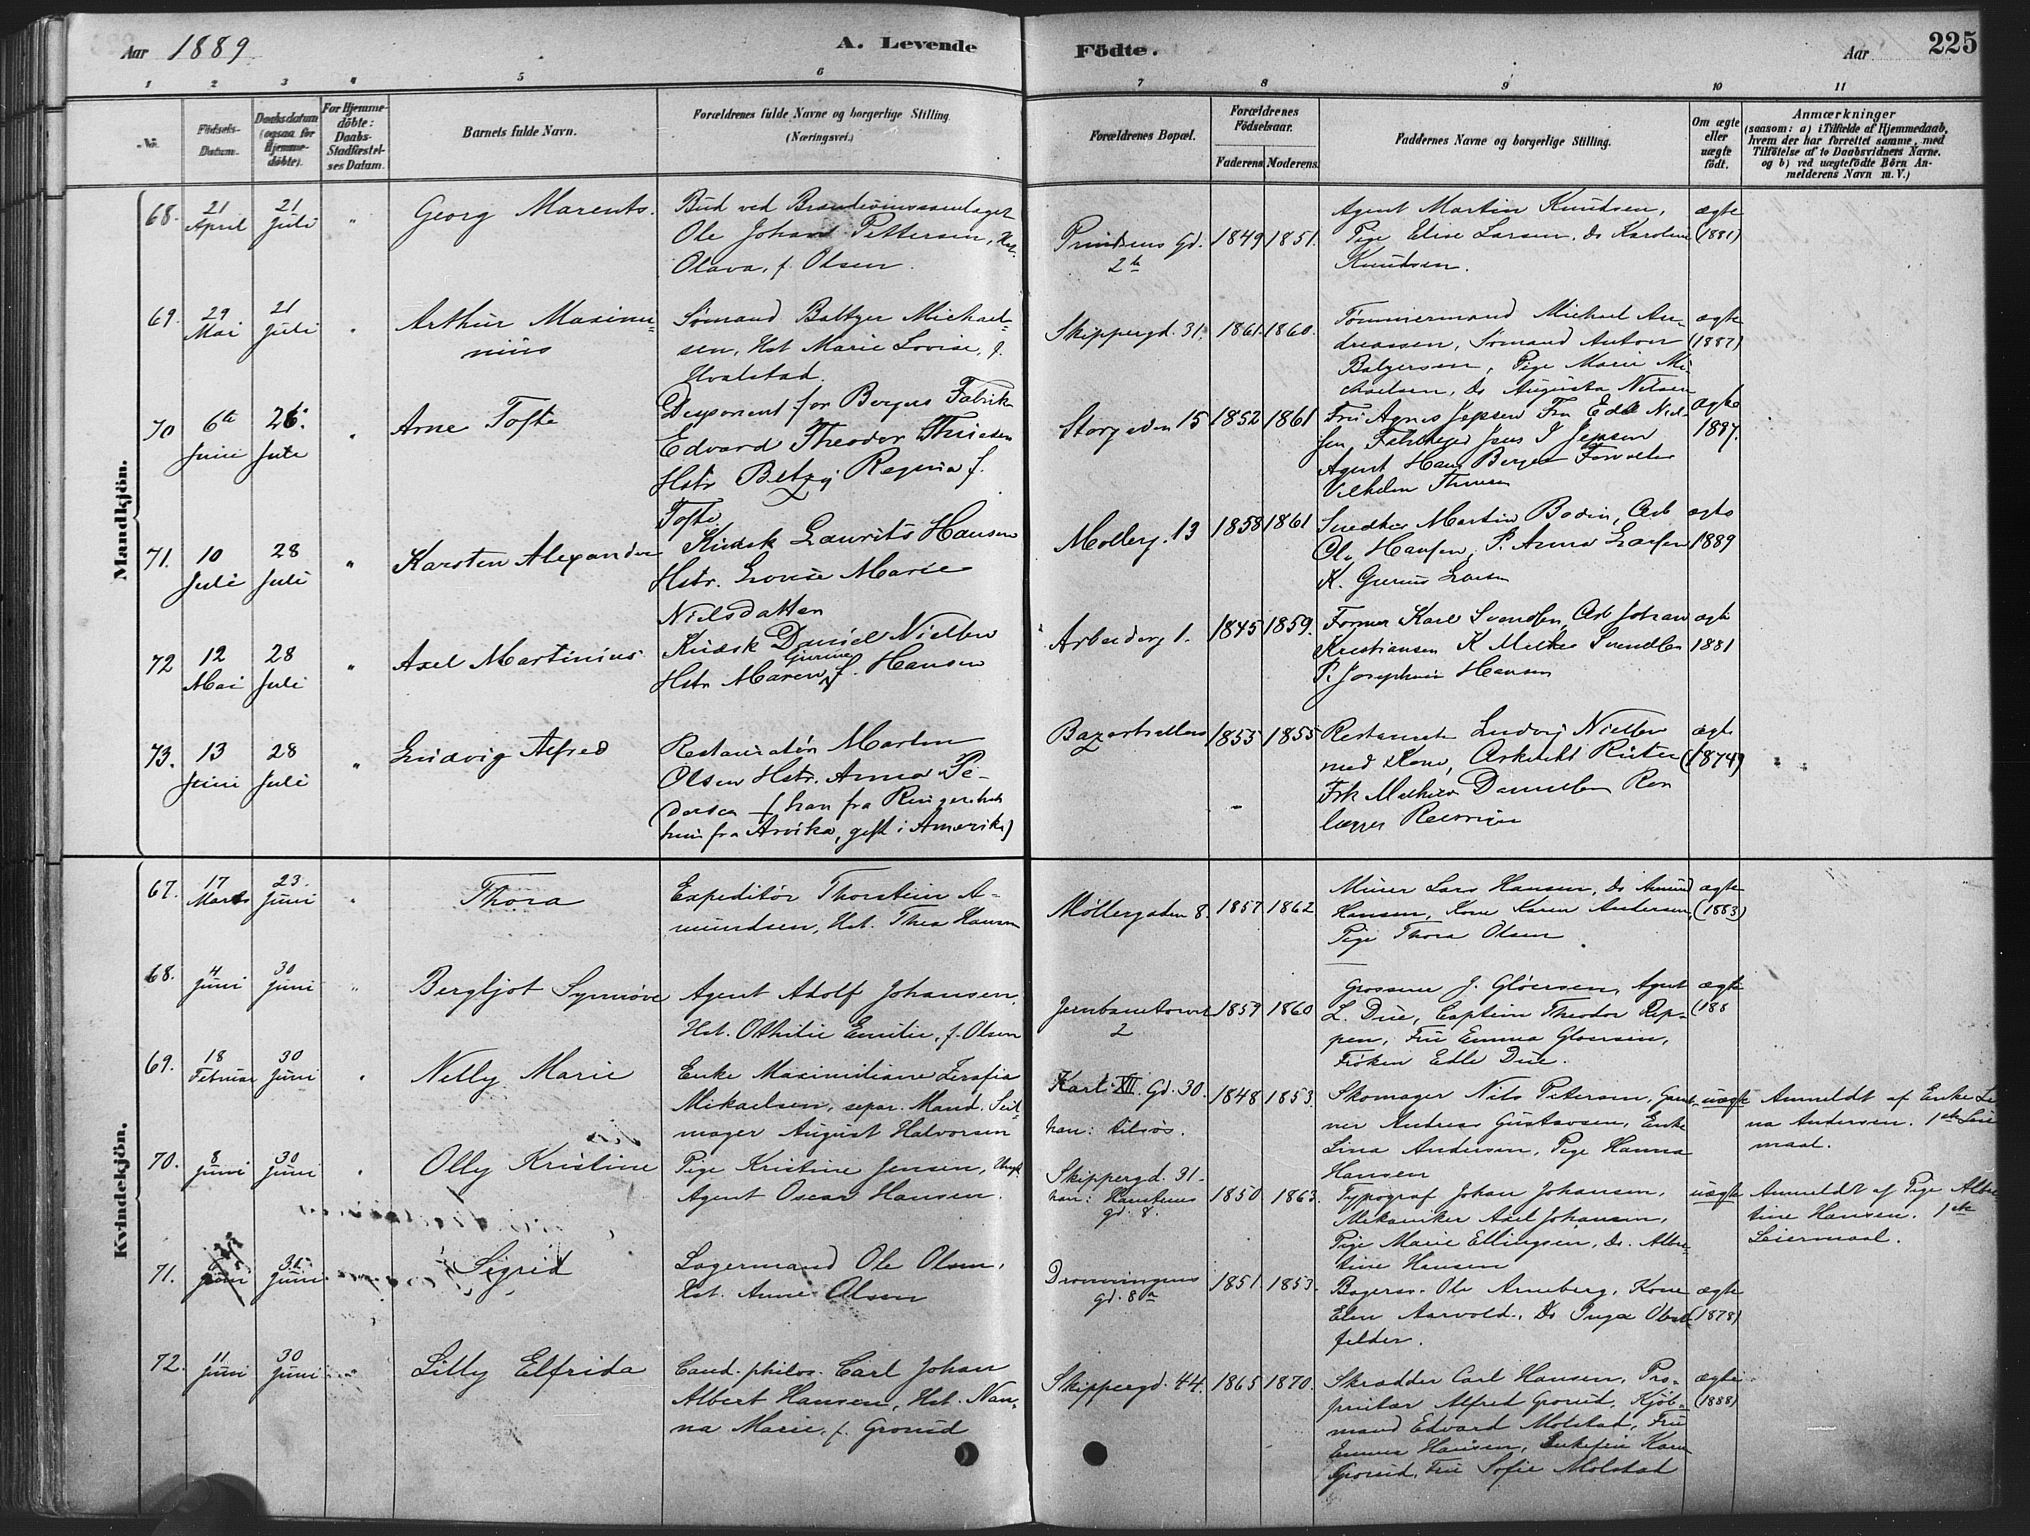 Aar 1889
A. Levende Födte.
Aar
225
1 2 3 4 5 6 7 8 9 10 11
No.
Födsels-
Datum.
Daabsdatum
(ogsaa for
Hjemme-
döbte).
For Hjemme-
döbte:
Daabs-
Stadfæstel-
ses Datum.
Barnets fulde Navn.
Forældrenes fulde Navne og borgerlige Stilling.
(Næringsvei.)
Forældrenes Bopæl.
Forældrenes
Födselsaar.
Faderens. Moderens.
Faddernes Navne og borgerlige Stilling.
Om ægte
eller
uægte
födt.
Anmærkninger
(saasom: a) i Tilfælde af Hjemmedaab,
hvem der har forrettet samme, med
Tilföielse af to Daabsvidners Navne,
og b) ved uægtefödte Börn An-
melderens Navn m. V.)
Mandkjön.
68. 21 April 21 Juli " Georg Marents.
Bud ved Brændevinssamlaget
Ole Johan Pettersen, Hst.
Olava, f. Olsen.
Prindsens Gd.
2b
1849 1851.
Agent Martin Knudsen,
Pige Elise Larsen, Do Karoline
Knudsen.
ægte
(1881)
69. 29 Mai 21 Juli " Arthur Maximi-
nius
Sømand Baltzer Michael-
sen, Hst Marie Lovise, f.
Hvalstad.
Skippergd. 31. 1861. 1860.
Tømmermand Michael An-
dreassen, Sømand Anton
Balzersen, Pige Marie Mi-
chaelsen, Do Augusta Nilsen
ægte
(1887)
70 6te Juni 26. Juli " Arne Tofte
Disponent for Bergers Fabrik
Edvard Theodor Thuesen
Hstr Betzy Regina f.
Tofte
Storgaden 15 1852 1861
Fru Agnes Jepsen Fru Edle Niel-
sen, Jens J Jepsen
Agent Hans Berger Forvalter
Vilhelm Thuesen
ægte
1887.
71. 10 Juli 28 Juli " Karsten Alexander
Kudsk Laurits Hansen
Hstr. Lovise Marie
Nielsdatter
Møllerg. 13 1858 1861
Snedker Martin Bodin, Arb
Ole Hansen, P. Anna Larsen
K. Larsen
ægte
1889
72 12 Mai 28 Juli " Axel Martinius
Kudsk Daniel Nielsen
Hstr Maren Gurine f. Hansen
Arbeiderg 1. 1845 1859.
Former Karl Svendsen, Arb Johan
Kristiansen K Svendsen
P. Josephine Hansen
ægte
1881
73. 13 Juni 28 Juli " Ludvig Alfred
Restauratør Morten
Olsen Hstr. Anna Pe-
dersen (han fra Ringerike
hun fra Arvika, gift i Amerika)
Bazarhallen 1855 1855
Restaurat. Ludvig Nielsen
med Kone, Arkitekt
Frk Danielsen
ægte
(1874)
Kvindekjön.
67. 17 Marts 23. Juni " Thora
Expeditør Thorstein A-
mundsen, Hst. Thea Hansen
Møllergaden 8. 1857 1862
Murer Lars Hansen, Do Amund
Hansen, Kone Karen Andersen,
Pige Thora Olsen
ægte
(1883)
68. 4 Juni 30 Juni " Bergljot Synnøve
Agent Adolf Johansen,
Hst. Otthilie Emilie, f. Olsen
Jernbanetorvet
2
1859 1860
Grosserer J. Gløersen, Agent
L. Due, Captein Theodor Rep-
pen, Fru Emma Gløersen,
Frøken Edle Due.
ægte
(188
69. 18 Februar 30 Juni " Nelly Marie
Enke Maximiliane Zerafia
Mikaelsen, separ. Mand. Seil-
mager August Halvorsen
Karl XII. Gd. 30.
han: tilsøs.
1848 1853.
Skomager Nils Petersen, Gart-
ner Andreas Gustavsen, Enke
Lina Andersen, Pige Hanna
Hansen
uægte
Anmeldt af Enke Li-
na Andersen. 1ste Leier-
maal.
70. 8 Juni 30 Juni " Olly Kristine
Pige Kristine Jensen, Ungk.
Agent Oscar Hansen.
Skippergd. 31.
han:
gd. 8.
1850 1863.
Typograf Johan Johansen,
Mekaniker Axel Johansen,
Pige Marie Ellingsen, Do. Alber-
tine Hansen
uægte
Anmeldt af Pige Alber-
tine Hansen. 1ste
Leiermaal.
71. Juni 30 Juni Sigrid
Lagermand Ole Olsen,
Hst. Anne Olsen
Dronningens
gd. 8a
1851. 1853.
Bagersv. Ole Arneberg, Kone
Elen Aarvold, Do Inga Obst-
felder.
ægte
(1878)
72. 11 Juni 30 Juni " Lilly Elfrida
Cand. philos. Carl Johan
Albert Hansen, Hst. Nan-
na Marie, f. Grorud
Skippergd. 44. 1865 1870.
Skrædder Carl Hansen, Pro-
prietær Alfred Grorud, Kjøb-
mand Edvard Molstad, Fru
Emma Hansen, Enkefru Karen
Grorud, Fru Sofie Molstad
ægte
(1888)